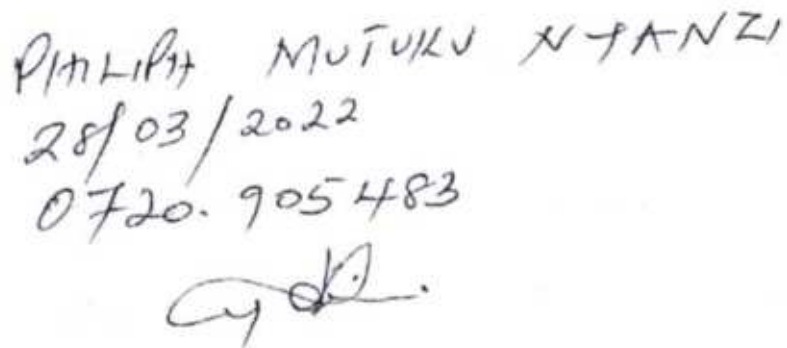 PHILIPH MUTUKU NTANZI
28/03/2022
0720. 905483